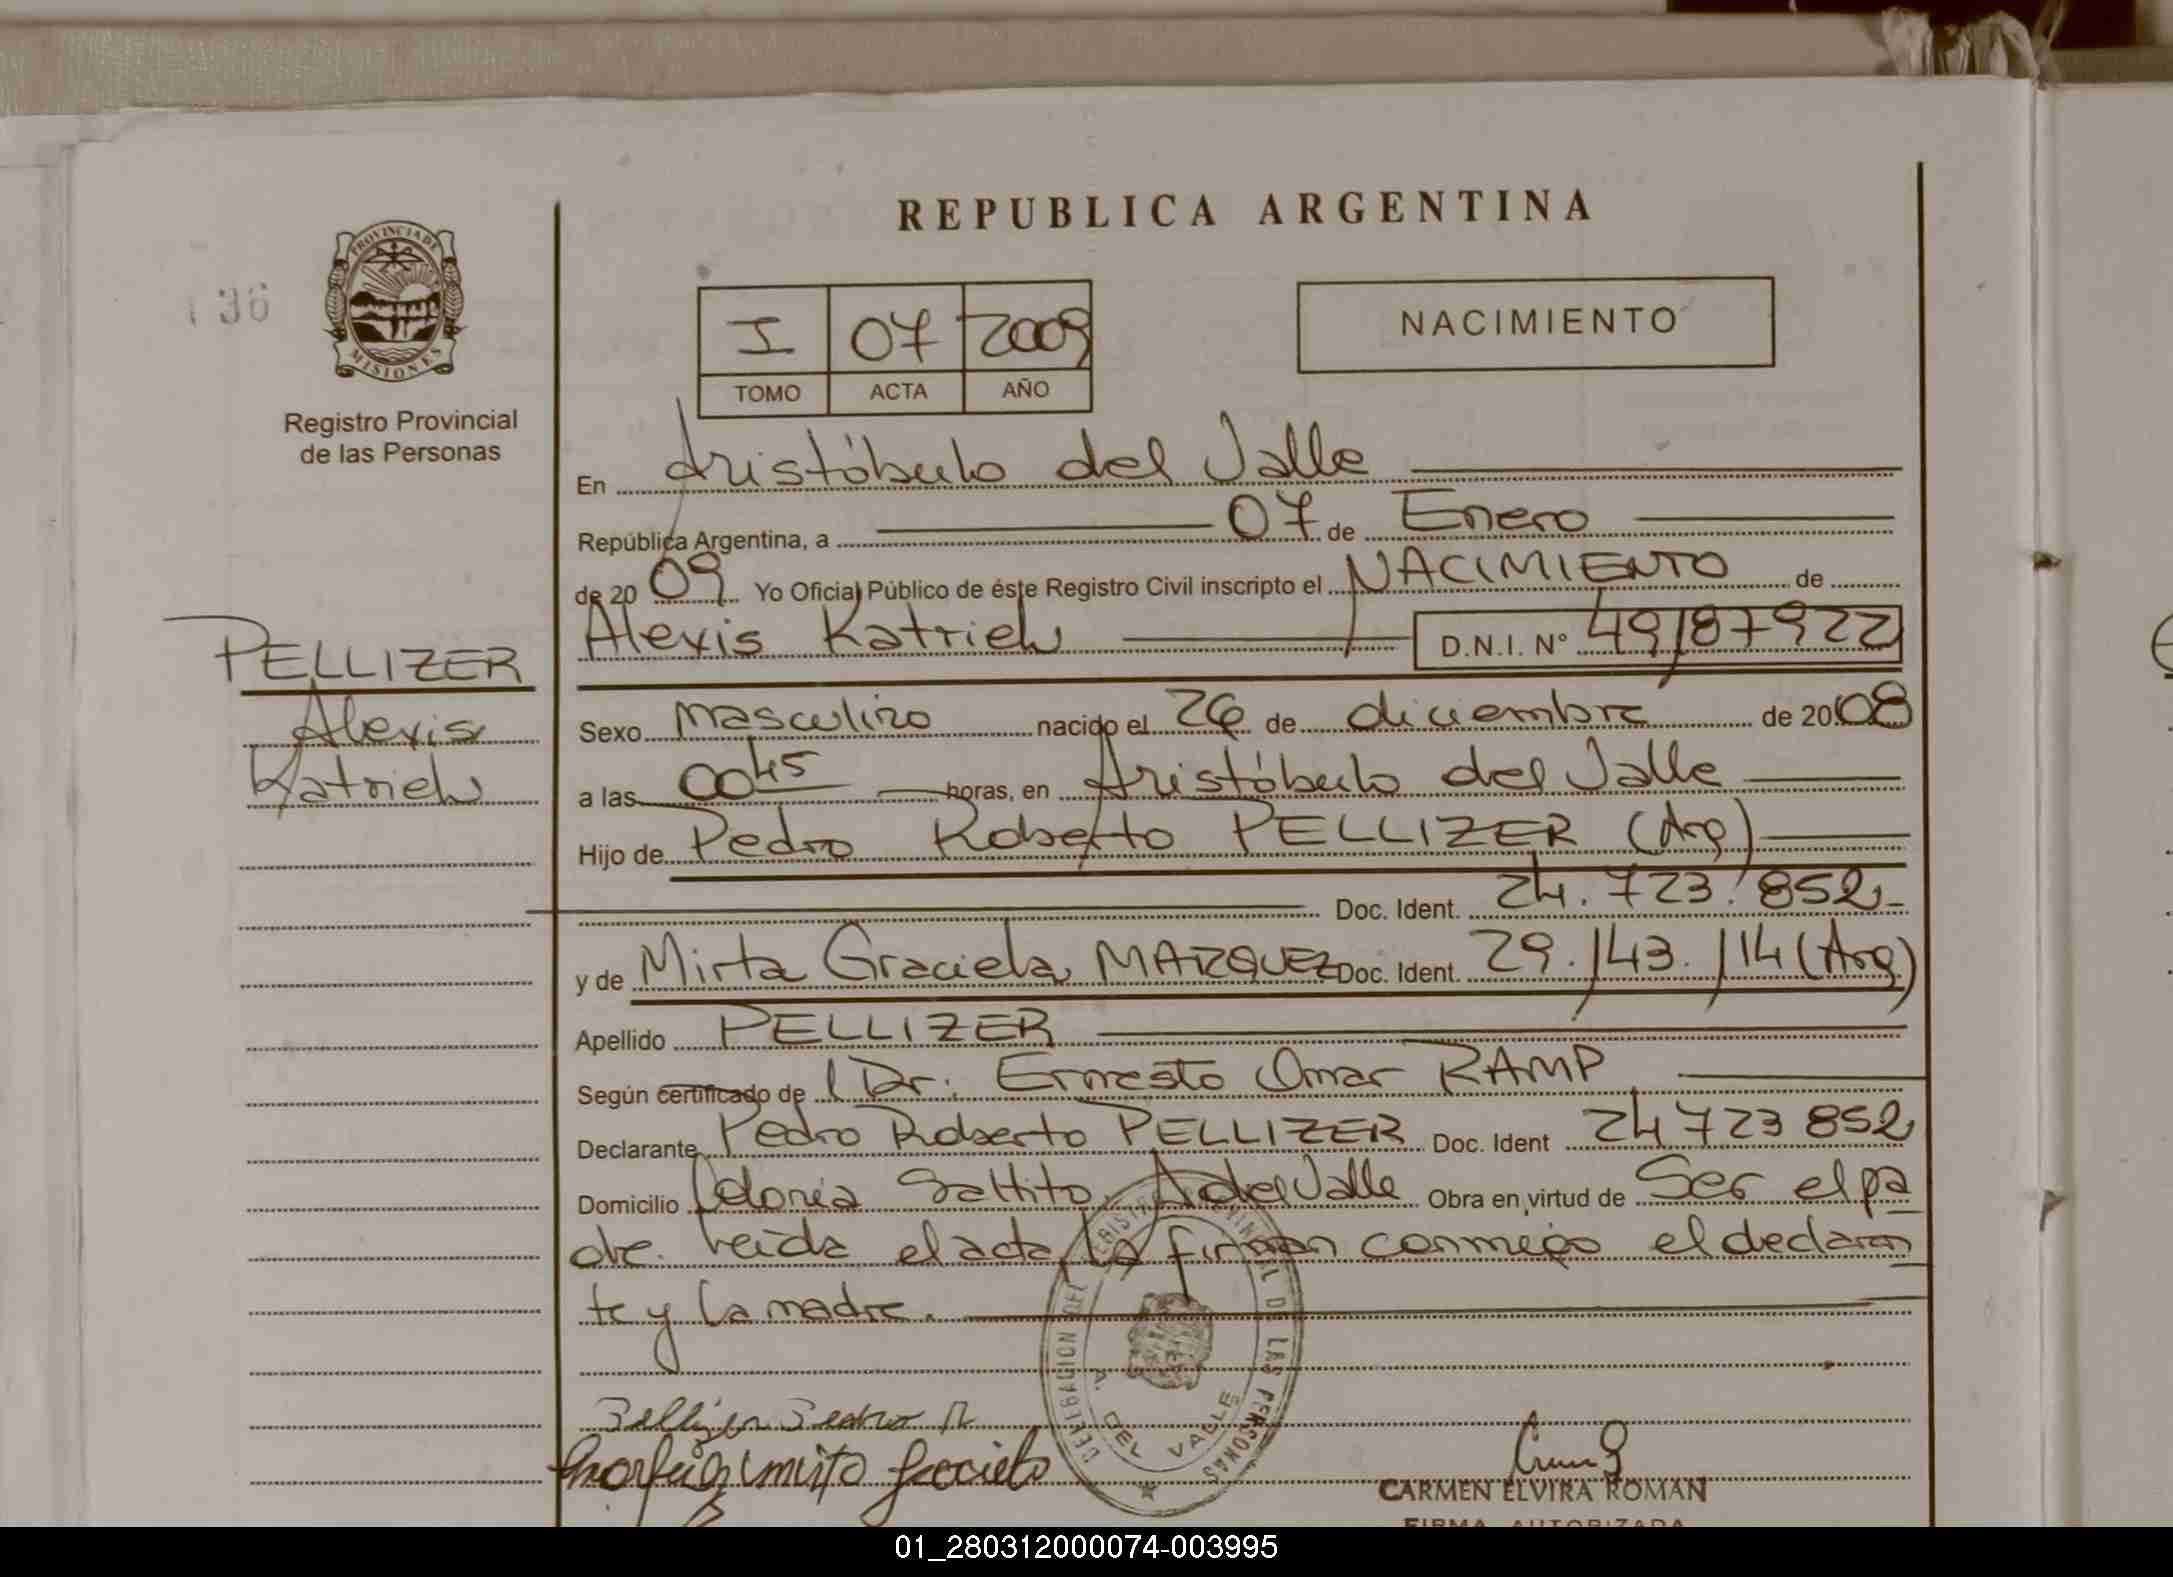 REPUBLICA ARGENTINA
PROVINCIA DE
MISIONES
136
Registro Provincial
de las Personas
I 07 2009
TOMO ACTA AÑO
NACIMIENTO
En Aristóbulo del Valle
República Argentina, a 07 de Enero
de 2009 Yo Oficial Público de éste Registro Civil inscripto el NACIMIENTO de
Alexis Katriel D.N.I. Nº 49187922
PELLIZER
Alexis
Katriel
Sexo masculino nacido el 26 de diciembre de 2008
a las 00 45 horas, en Aristóbulo del Valle
Hijo de Pedro Roberto PELLIZER (Arg)
Doc. Ident. 24.723.852
y de Mirta Graciela MARQUEZ Doc. Ident. 29.143.114 (Arg)
Apellido PELLIZER
Según certificado de l Dr. Ernesto Omar RAMP
Declarante Pedro Roberto PELLIZER Doc. Ident 24723852
Domicilio Colonia Saltito, A del Valle Obra en virtud de Ser el pa
dre. Leida el acta, la firman conmigo el declaran
te y la madre.
DELEGACION DEL REGISTRO PROVINCIAL DE LAS PERSONAS
A. DEL VALLE
Pellizer Pedro R
CARMEN ELVIRA ROMAN
FIRMA AUTORIZADA
01_280312000074-003995